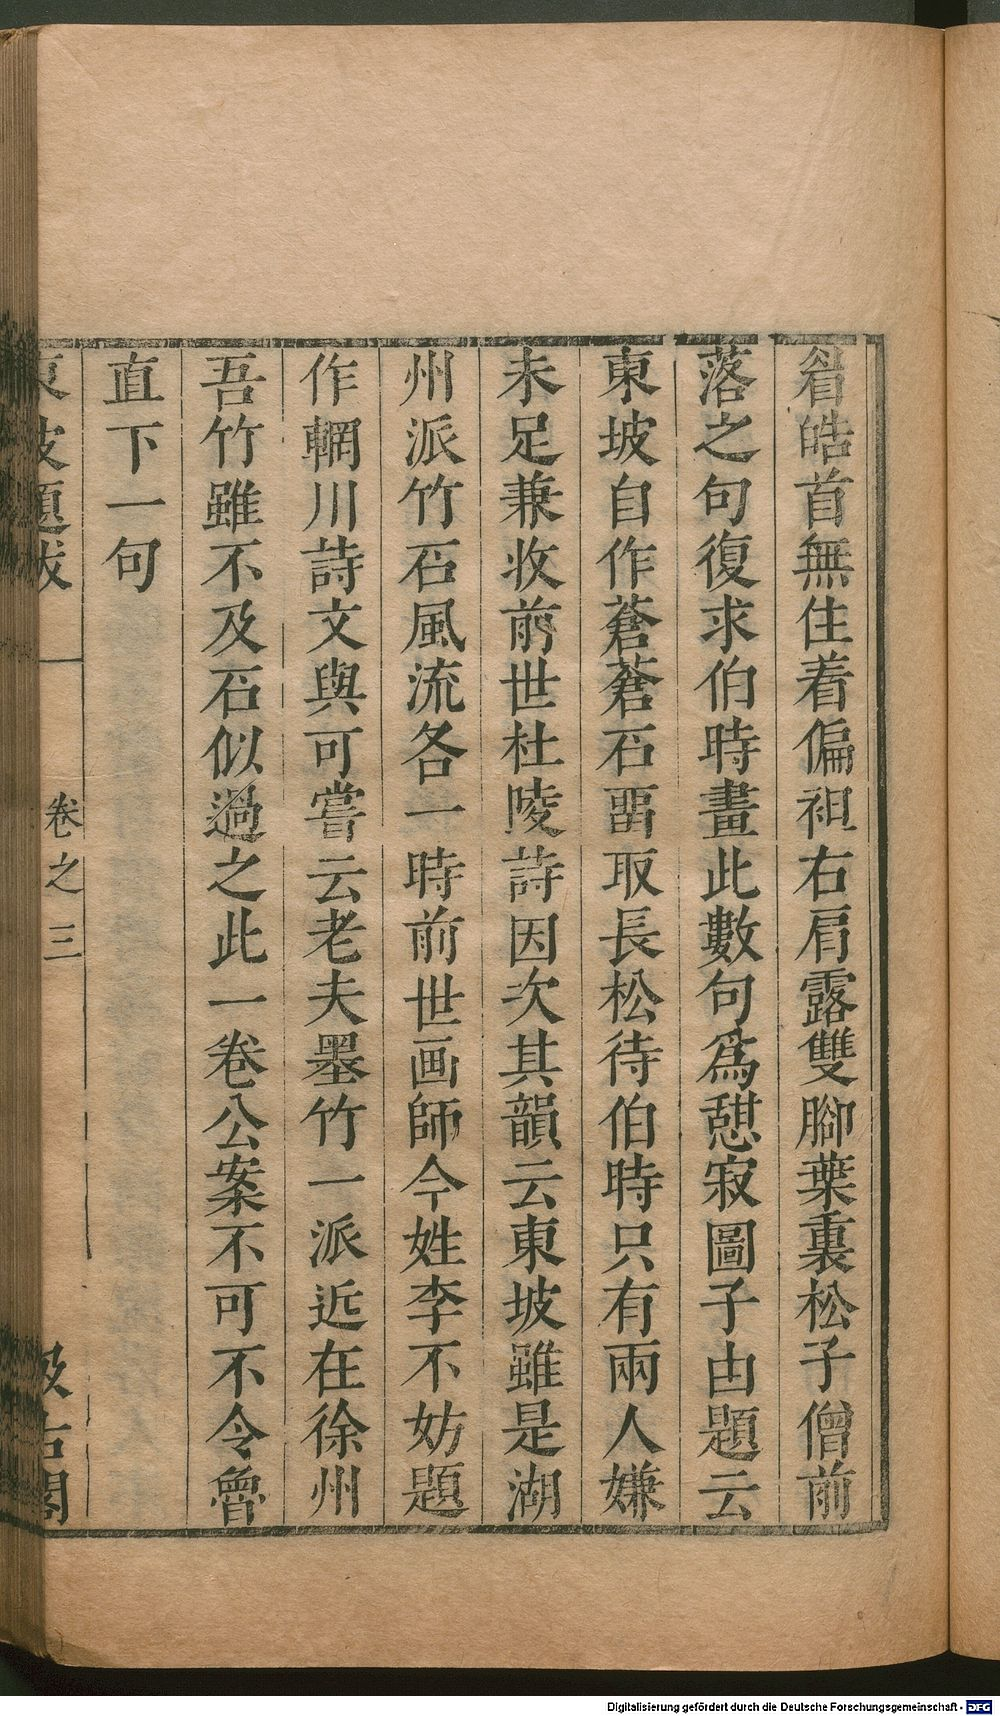 眉皓首無住着偏袒右肩露雙腳葉裏松子僧前
落之句復求伯時畫此數句爲憇寂圖子由題云
東坡自作蒼蒼石畱取長松待伯時只有兩人嫌
未足兼收前世杜陵詩因次其韻云東坡雖是湖
州派竹石風流各一時前世画師今姓李不妨題
作輞川詩文與可嘗云老夫墨竹一派近在徐州
吾竹雖不及石似過之此一卷公案不可不令魯
直下一句
東坡題跋 卷之三 汲古閣
Digitalisierung gefördert durch die Deutsche Forschungsgemeinschaft - DFG